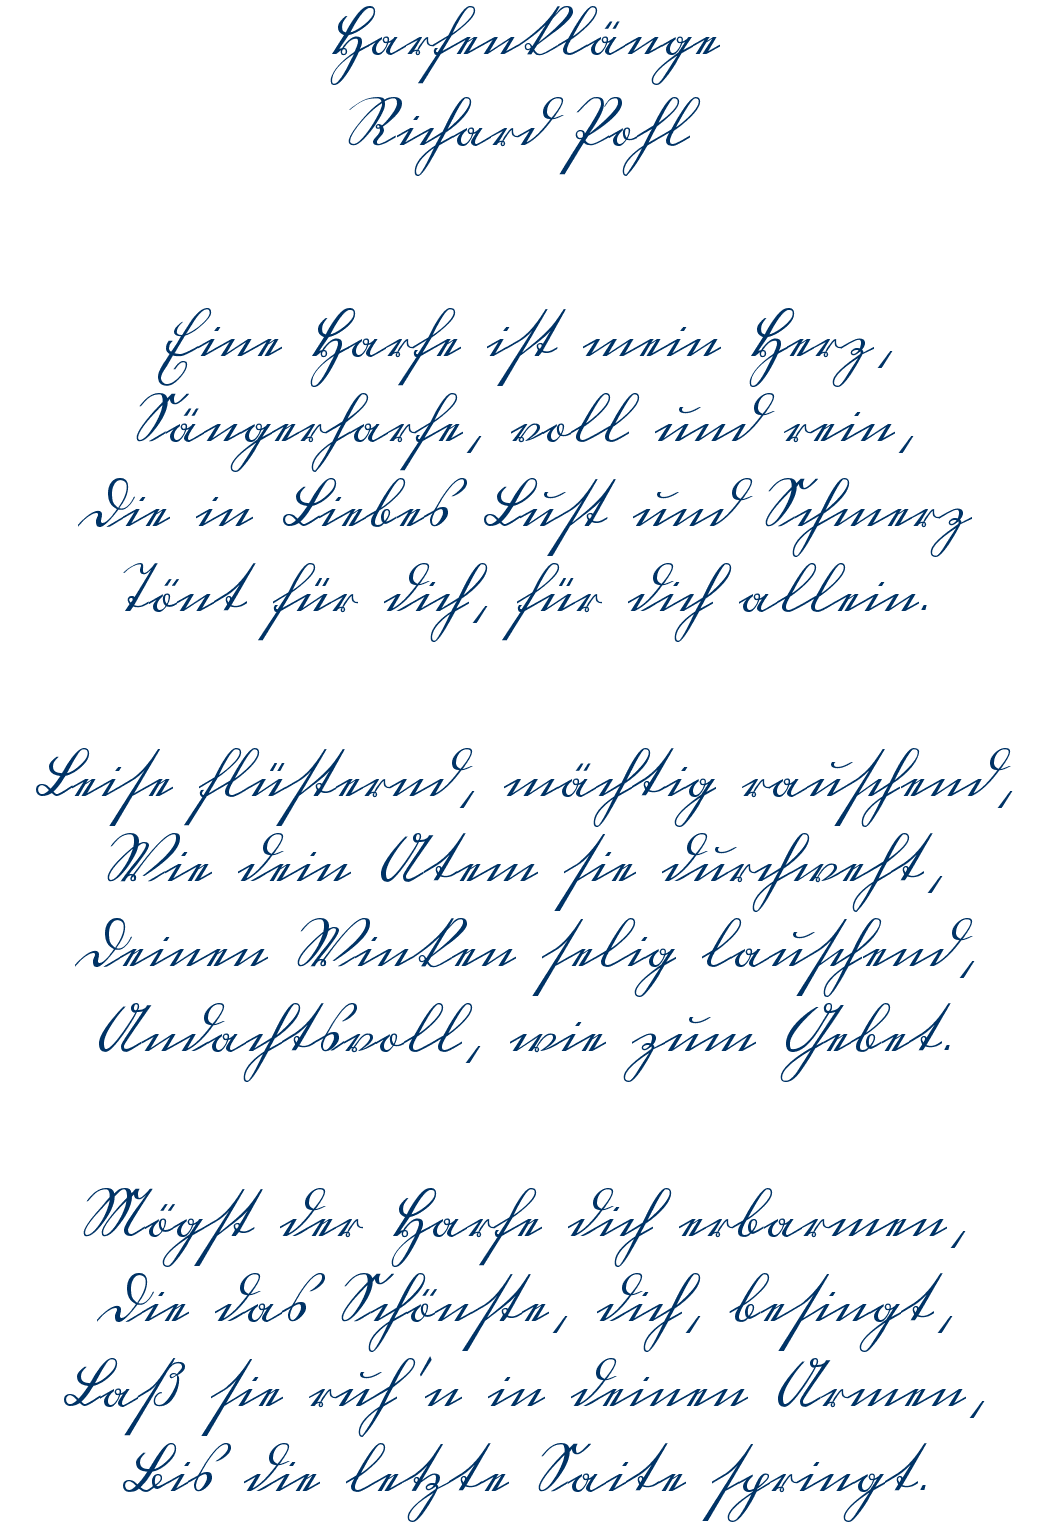 Harfenklänge
Richard Pohl
Eine Harfe ist mein Herz,
Sängerharfe, voll und rein,
Die in Liebes Lust und Schmerz
Tönt für dich, für dich allein.
Leise flüsternd, mächtig rauschend,
Wie dein Atem sie durchweht,
Deinen Winken selig lauschend,
Andachtsvoll, wie zum Gebet.
Mögst der Harfe dich erbarmen,
Die das Schönste, dich, besingt,
Laß sie ruh'n in deinen Armen,
Bis die letzte Saite springt.